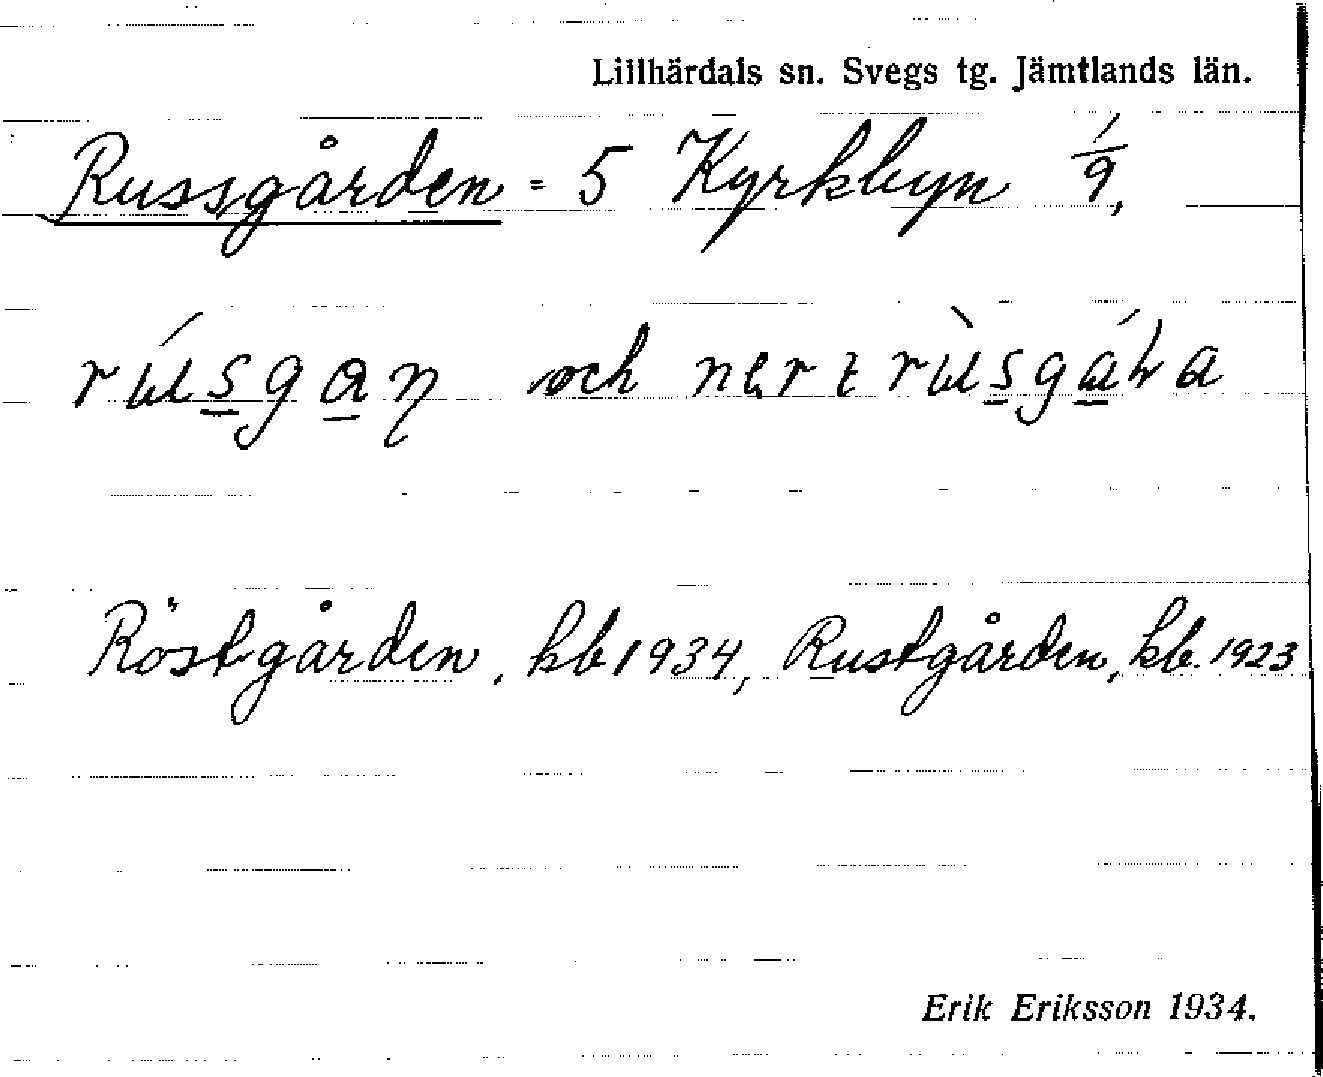 Lillhärdals sn. Svegs tg. Jämtlands län.
Russgården = 5 Kyrkbyn 1/9,
rúsgan och nerrùsgáɽa
Röstgården, kb 1934, Rustgården, kb. 1923
Erik Eriksson 1934.